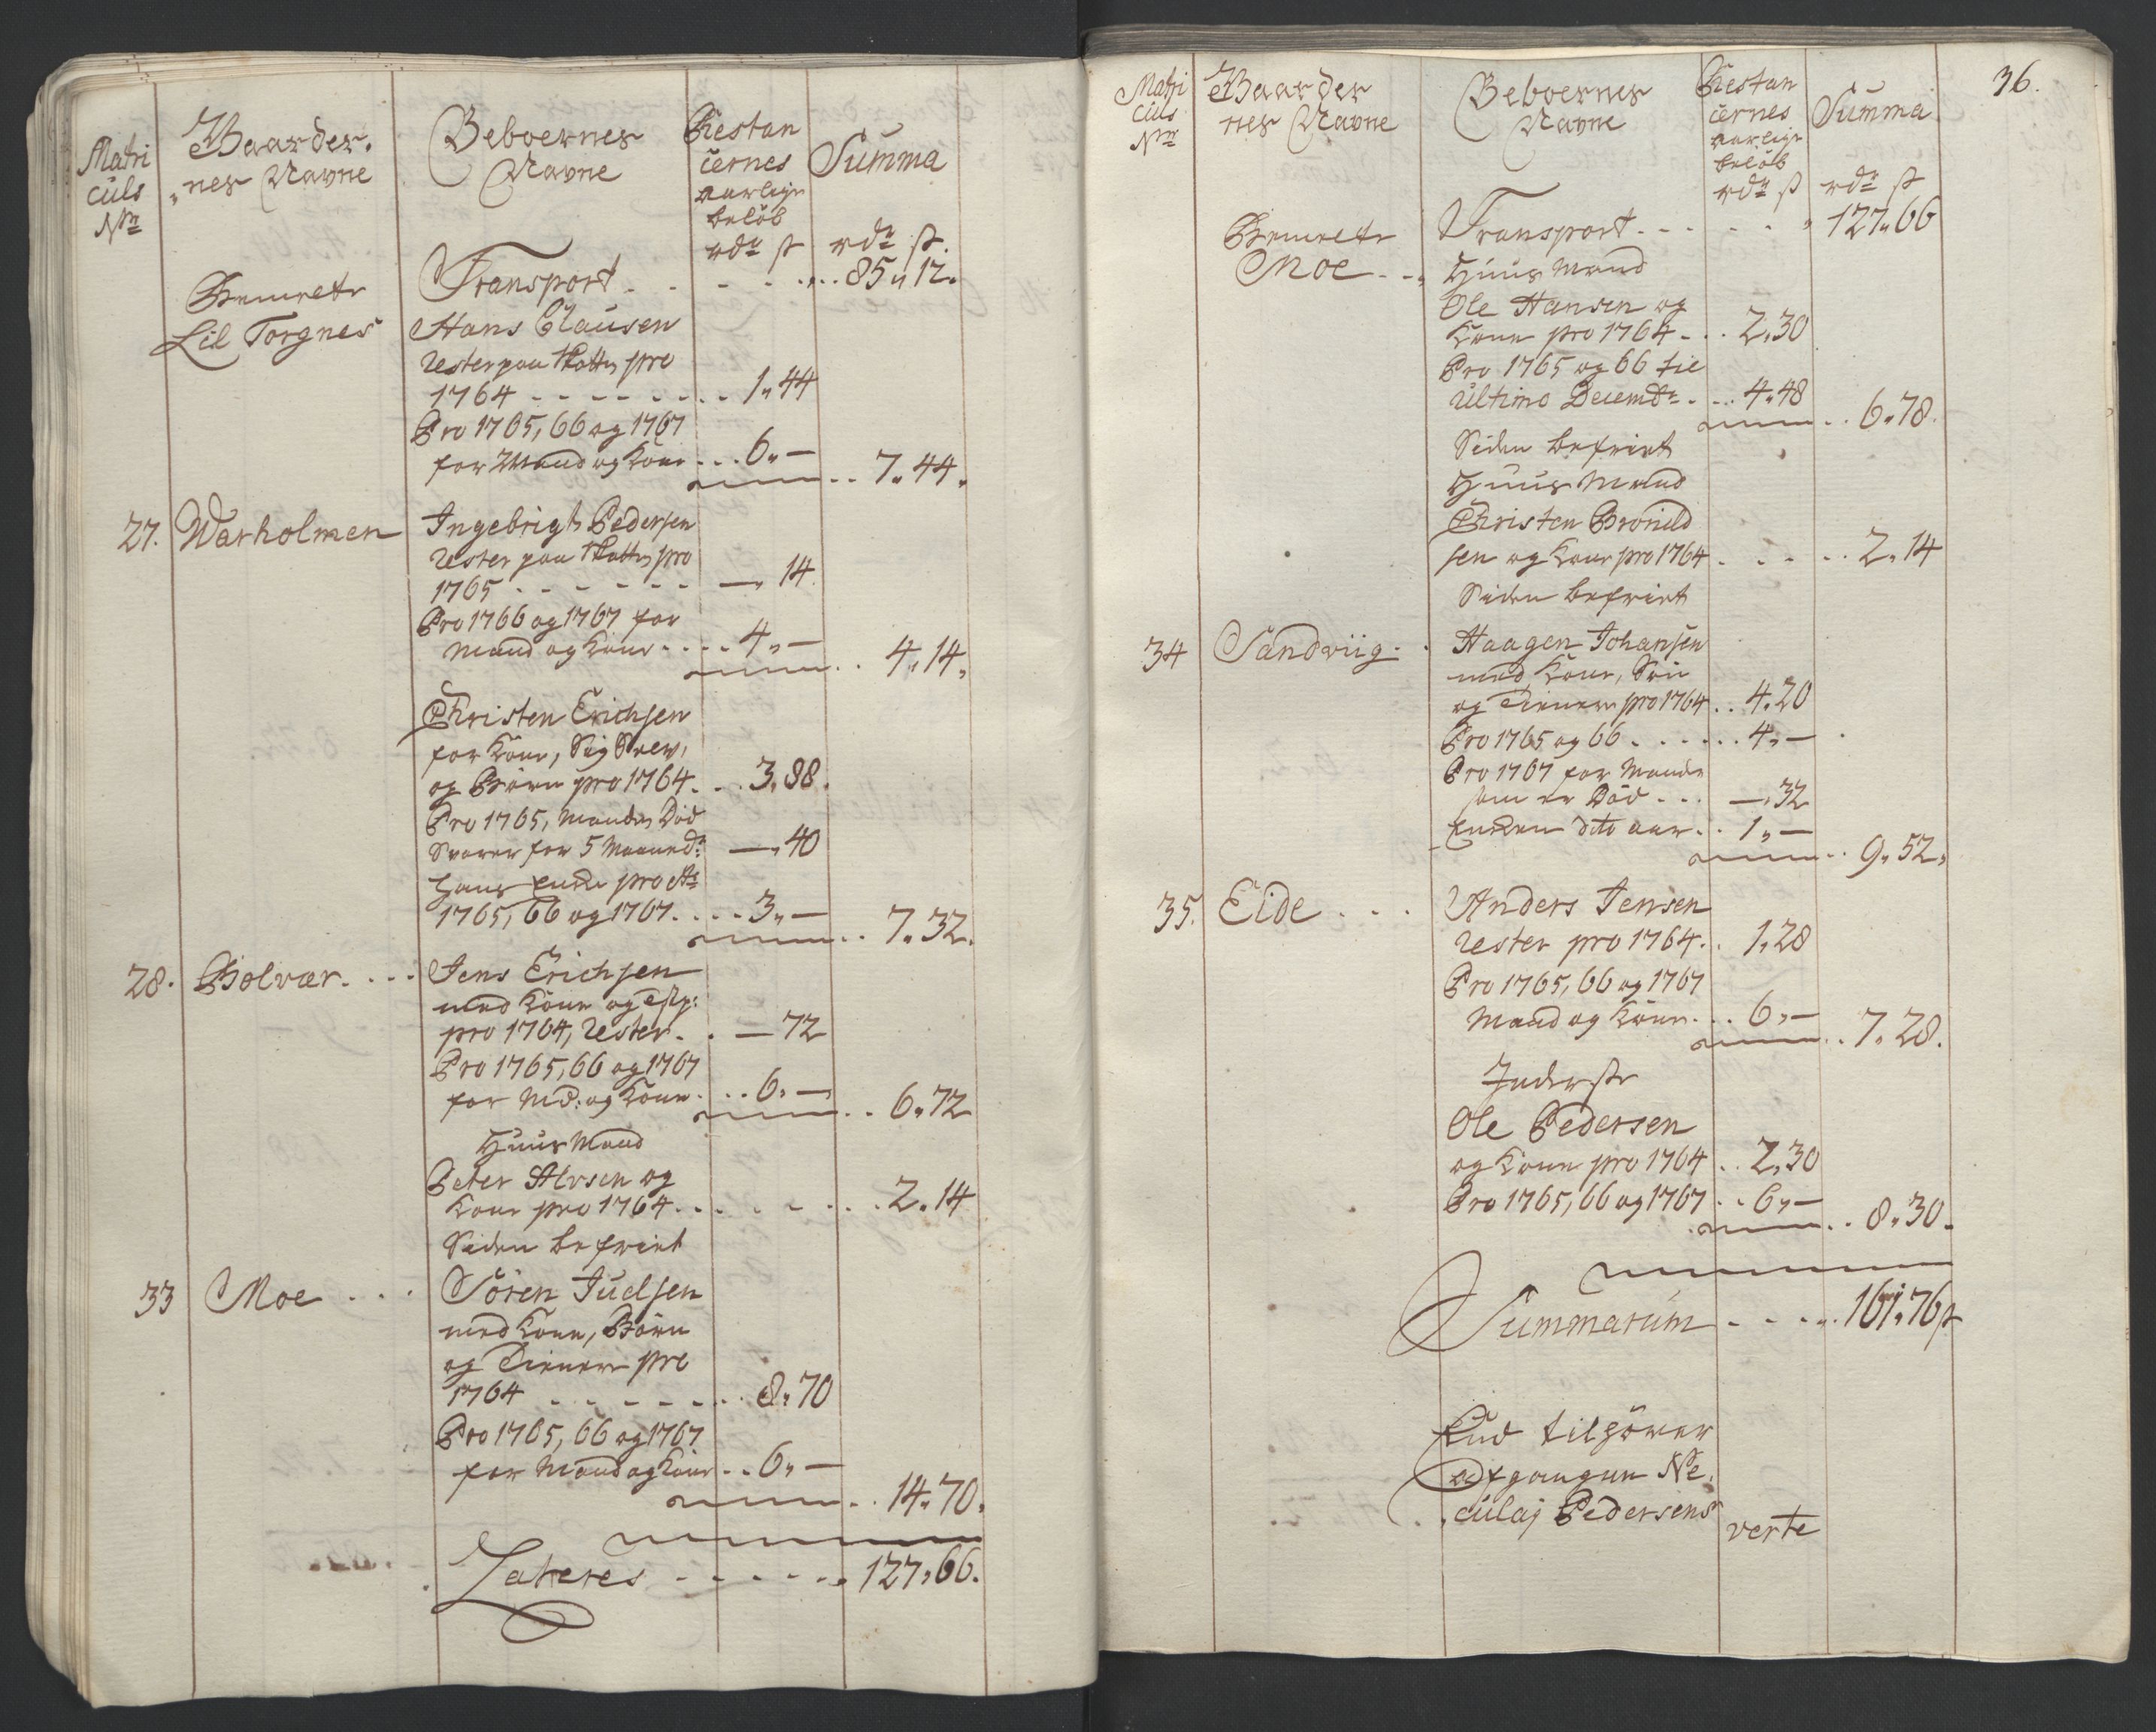 Matri
culs
Nr
Gaarder,
nes Navne
Beboernes
Navne
Restan
cernes
aarlige
beløb
rdr ß
Summa
rdr ß.
Transport . . . . . . 85 „ 12.
Lil Torgnes
Hans Clausen
Rester paa Skatten pro
1764 . . . . . . 1„ 44
Pro 1765, 66 og 1767
for Mand og Kone . . . 6„ —
7„ 44.
27. Warholmen
Ingebrigt Pedersen
Rester paa Skatten pro
1765 . . . . . . —„ 14.
Pro 1766 og 1767 for
Mand og Kone . . . . 4„ —
4„ 14„
Christen Erichsen
for Kone, Sig Selv,
og Børn pro 1764 . . . 3„ 88.
Pro 1765, Manden Død
Svarer for 5 Maaneder —„ 40
hans Enke pro Ao
1765, 66 og 1767 . . . . 3„ —
7„ 32.
28. Bolvær . . .
Jens Erichsen
med Kone og
pro 1764, Rester . . — 72
Pro 1765, 66 og 1767
for Md: og Kone . . . 6„ —
6„ 72
Huus Mand
Peter Alvsen og
Kone pro 1764 . . . . . . . 2„ 14
Siden befriet
33 Moe . . .
Sören Juelsen
med Kone, Børn
og Tienere pro
1764 . . . . . . . 8„ 70
Pro 1765, 66 og 1767
for Mand og Kone . . 6„ —
14„ 70„
Lateres . . . . . . 127„ 66.
36.
Matri
culs
Nr
Gaarder
nes Navne
Beboernes
Navne
Restan
cernes
aarlige
beløb
rdr ß
Summa
rdr ß
Transport . . . . . . 127„ 66
Moe . . .
Huus Mand
Ole Hansen og
Kone pro 1764 . . . 2„ 30
Pro 1765 og 66 til
Ultimo Decembr . . . 4„ 48
6„ 78.
Siden befriet
Huus Mand
Christen Bronild
sen og Kone pro 1764 . . . . . 2„ 14
Siden befriet
34 Sandviig . .
Haagen Johansen
med Kone, Søn
og Tienere pro 1764 . . 4„ 20
Pro 1765 og 66 . . . . . . 4„ —
Pro 1767 for Manden
som er Død . . . —„ 32
Enken dito aar . . 1„ —
9„ 52„
35. Eide . . .
Anders Jensen
Rester pro 1764 . . 1„ 28
Pro 1765, 66 og 1767
Mand og Kone . . . 6„ —
7„ 28.
Inderste
Ole Pedersen
og Kone pro 1764 . . 2„ 30
Pro 1765, 66 og 1767 . . 6„ —
8„ 30.
Summarum . . . . . 161„ 76 ß
End tilhører
Afgangen Ni,
culaj Pedersens
verte